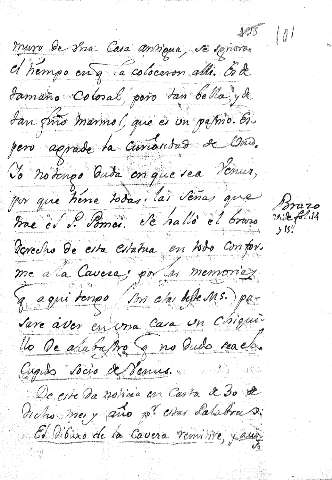 101
muro de una Casa antigua, se ignora
el tiempo en q la colocaron alli. Es de
tamaño Colosal pero tan bella, y de
tan fino marmol, que es un pasmo. Es
pero agrade la curiosidad de Vmd.
Yo no tengo duda en que sea Venus,
por que tiene todas las señas que
trae el P. Pomei. Se halló el brazo
derecho de esta estatua en todo confor
me a la Cavera; por las memorias
q aqui tengo (sin el de este Ms.) pa
sare á ver en una casa un chiqui
llo de alabastro q no dudo sea el
Cupido socio de Venus.
De este da noticia en Carta de 30 de
dicho mes y año pr estas palabras:
El dibuxo de la Cavera remitire, y aunq
Brazo